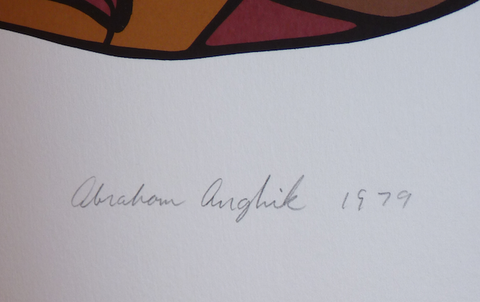 Abraham Anghik 1979